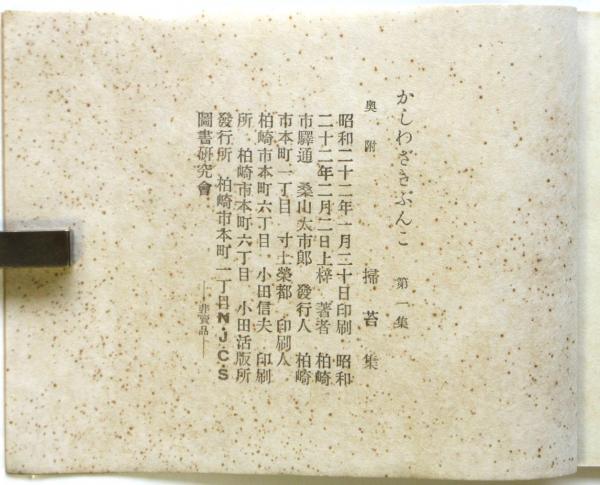 かしわざきぶんこ 第一集
奥附 掃苔集
昭和二十二年一月三十日印刷 昭和
二十二年二月二日上梓 著者 柏崎
市驛通 桑山太市郎 發行人 柏崎
市本町一丁目 寸土榮都 印刷人
柏崎市本町六丁目 小田信夫 印刷
所 柏崎市本町六丁目 小田活版所
發行所 柏崎市本町一丁目N.J.C.S
圖書研究會 ―非賣品―